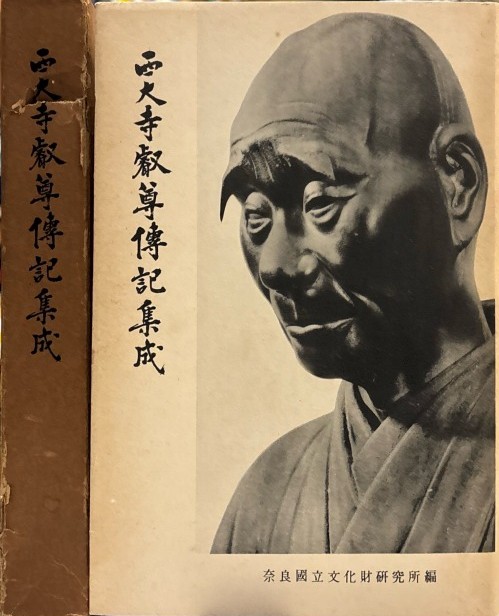 西大寺叡尊傳記集成
西大寺叡尊傳記集成
奈良國立文化財研究所編